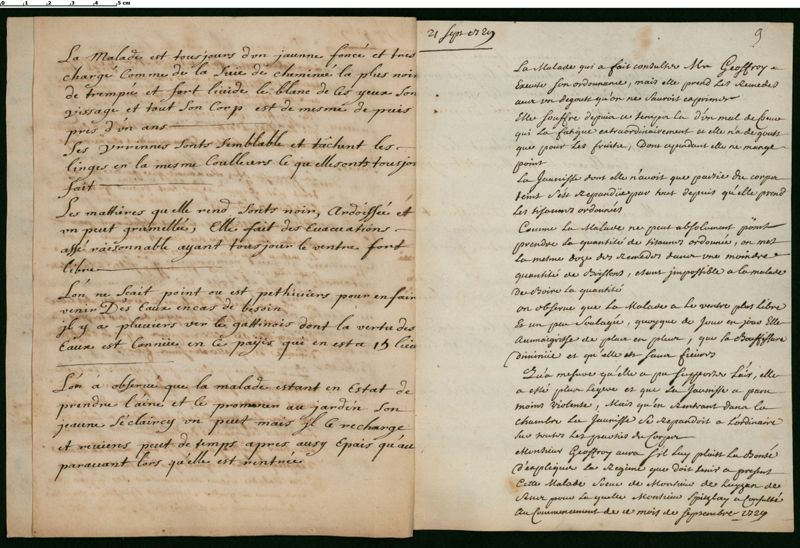 La Malade est tousjours d'un jaunne foncé et tres
chargé Comme de la Suie de cheminée la plus noir
de trempée et fort livide le blanc de Ces yeux Son
vissage et tout Son Corp est de mesme de puis
prés d'un ans
Ses Vrrinnes Sonts Semblable et tâchent les
linges en la mesme Coulleurs le quelle sonts tousjo
fait
Les mattières qu'elle rend Sonts noir, Ardoissée et
un peut grumellée, Elle fait des Evacuations
assé raisonnable ayant tousjour le ventre fort
libre
L'on ne Scait point ou est pethiviers pour en fair
venir Des Eaux en cas de besoin
jl y as plusiers ver le gattinois dont la vertu des
Eaux est Connue en Ce païjs qui en est a 15 lieu
L'on a observé que la malade estant en Estat de
prendre l'aîné et le promener au jardin Son
jeaune S'éclaircy un peut mais jl le recharge
et reviens peut de temps apres aussy Epais qu'au
paravant lors qu'elle est rentrée
21 Sept 1729
9
La Malade qui a fait consulter Mr Geoffroy
Execute Son ordonnance, mais elle prend Les Remedes
avec un degoute qu'on ne Sauroit exprimer
Elle Souffre depuis ce temps la D'un mal de Coeur
qui La fatigue extraordinairement et elle n'a de goute
que pour Les fruits, Dont cependant elle ne mange
point
La Jaunisse dont elle n'avoit que partie du corps
teint S'est Repandüe par tout depuis qu'elle prend
Les tisannes ordonnées
Comme La Malade ne peut absolument point
prendre La quantité de tisannes ordonnée, on met
La mesme doze des Remedes dans une moindre
quantité de Boisson, etant impossible a la malade
de Boire La quantité
on observe que La Malade a Le ventre plus Libre
Et un peu Soulagé, quoyque de Jour en jour Elle
Amaigrisse de plus en plus, que la Bouffissure
diminüe et qu'elle est Sans fievre
Qu'a mesure qu'elle a pu Supporter L'air, elle
a esté plus Legere et que La Jaunisse a paru
moins violente, Mais qu'en Rentrant dans La
chambre La Jaunisse Se Repandoit a L'ordinaire
Sur toutes Les parties du Corps
Monsieur Geoffroy aura S'il Luy plaist La Bonté
D'expliquer Le Regime que doit tenir a present
Cette Malade Soeur de Monsieur de
pour La quelle Monsieur a Consulté
au Commencement de ce mois de Septembre 1729